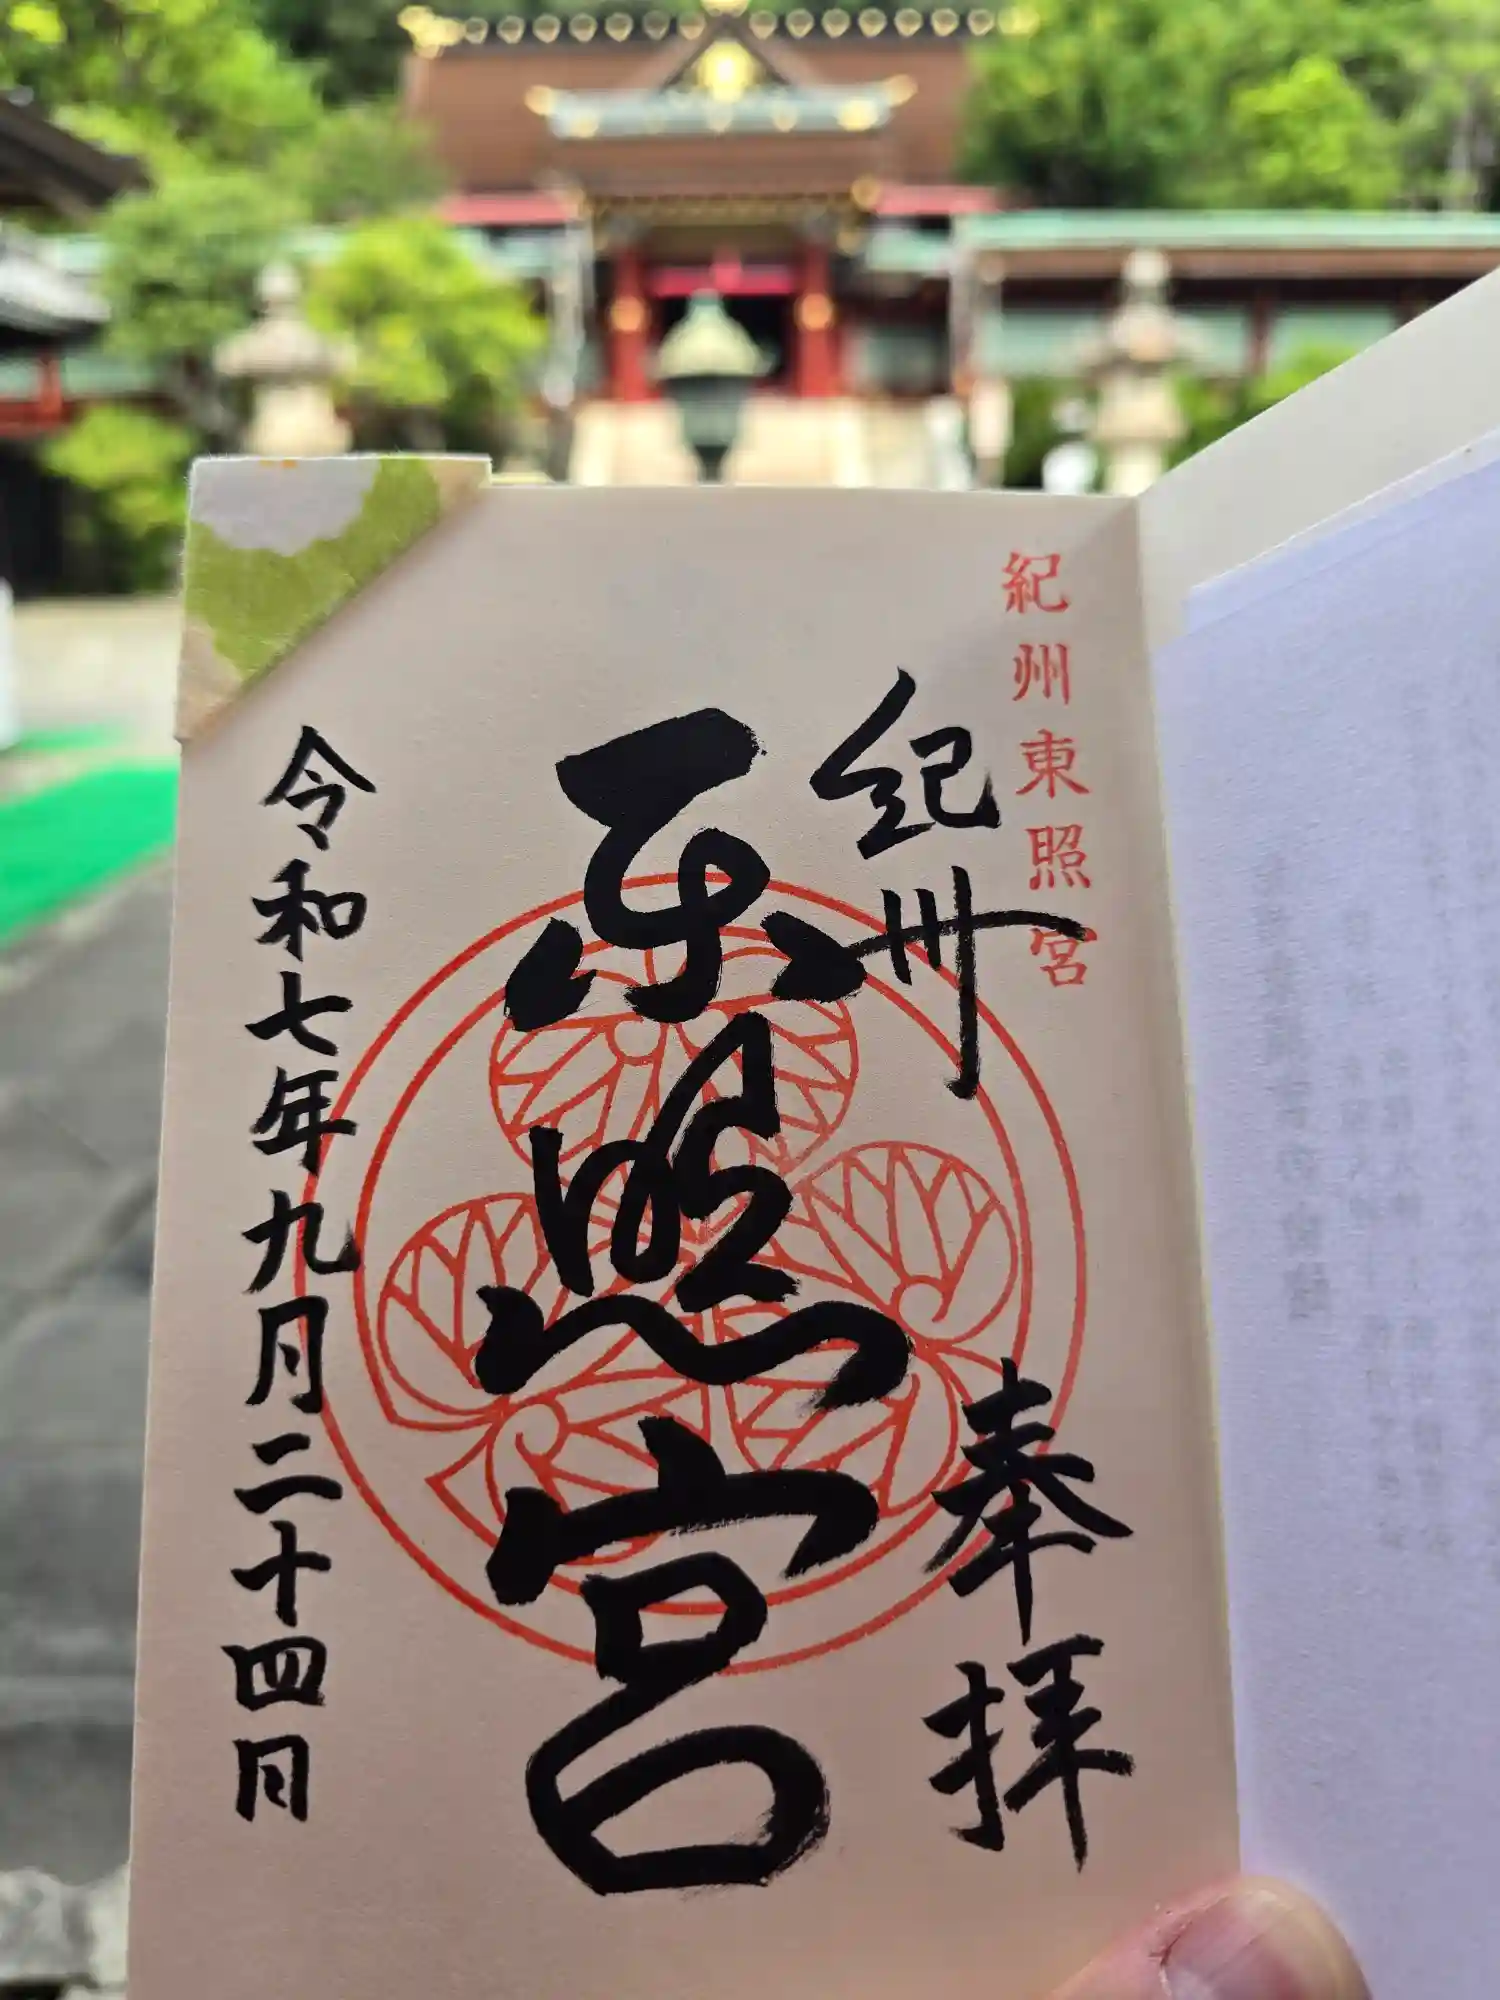 紀州東照宮
奉拝
紀州
東照宮
令和七年九月二十四日